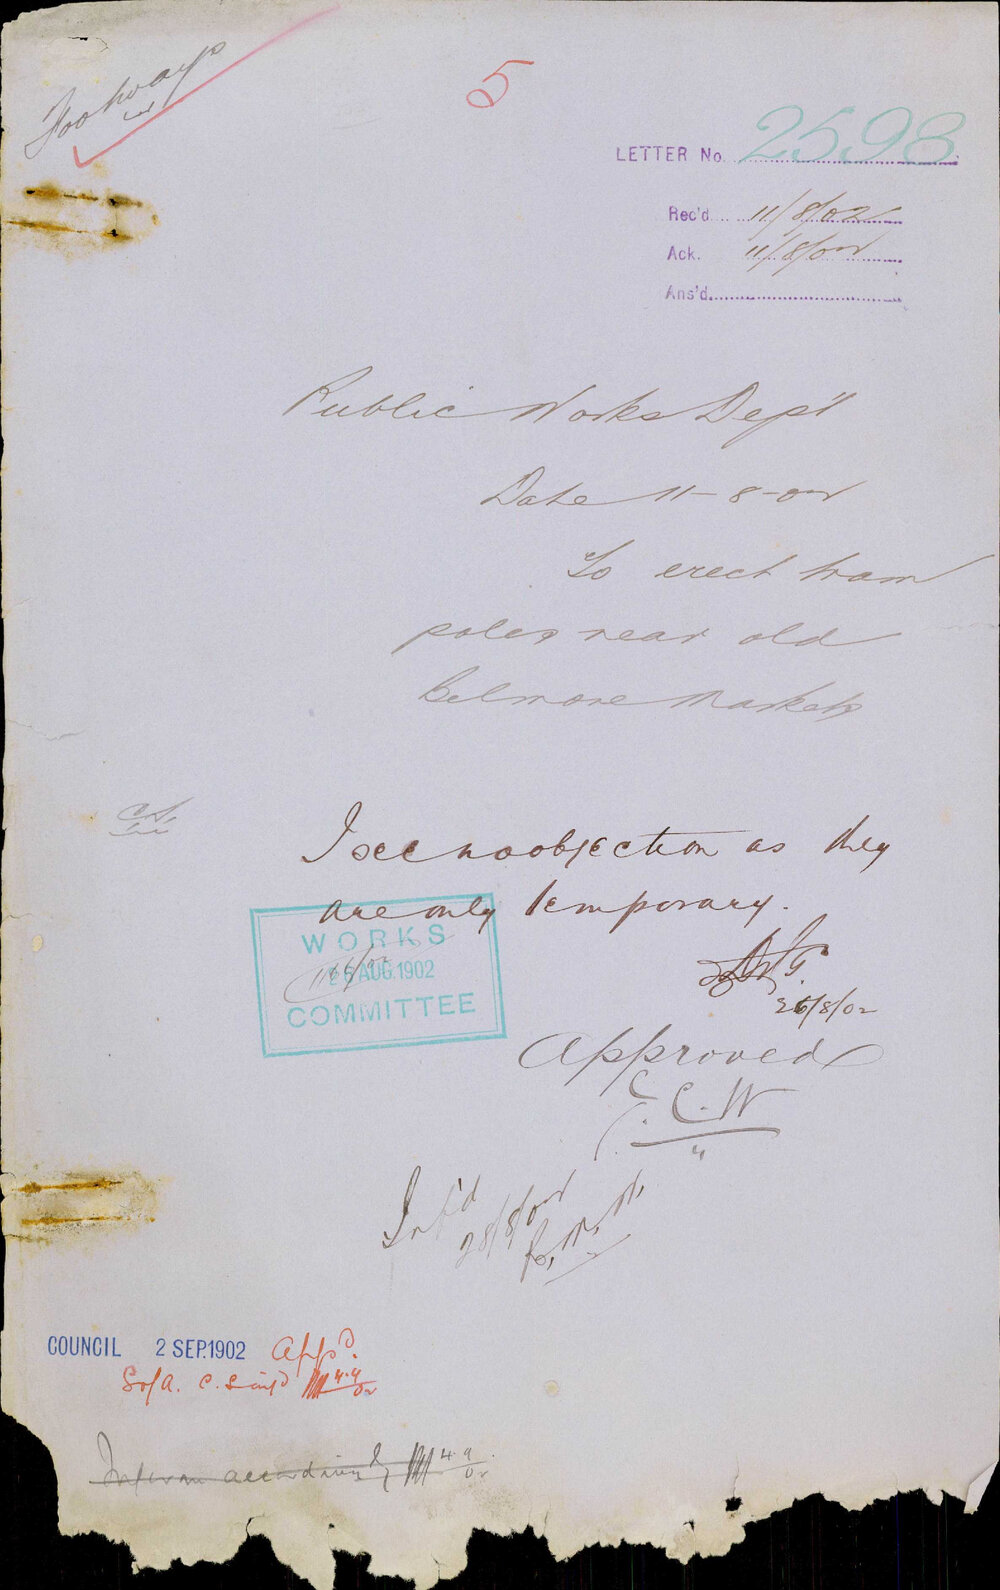 Footways
5
LETTER No. 2598
Rec'd 11/8/02
Ack. 11/8/02
Ans'd.
Public Works Dep't
Date 11-8-02
To erect tram
poles near old
Belmore Markets
I see no objection as they
are only temporary.
26/8/02
WORKS
26 AUG. 1902
COMMITTEE
Approved
Inf'd
28/8/02
COUNCIL 2 SEP. 1902 App'd.
4.9/02
Inform accordingly 4.9/02